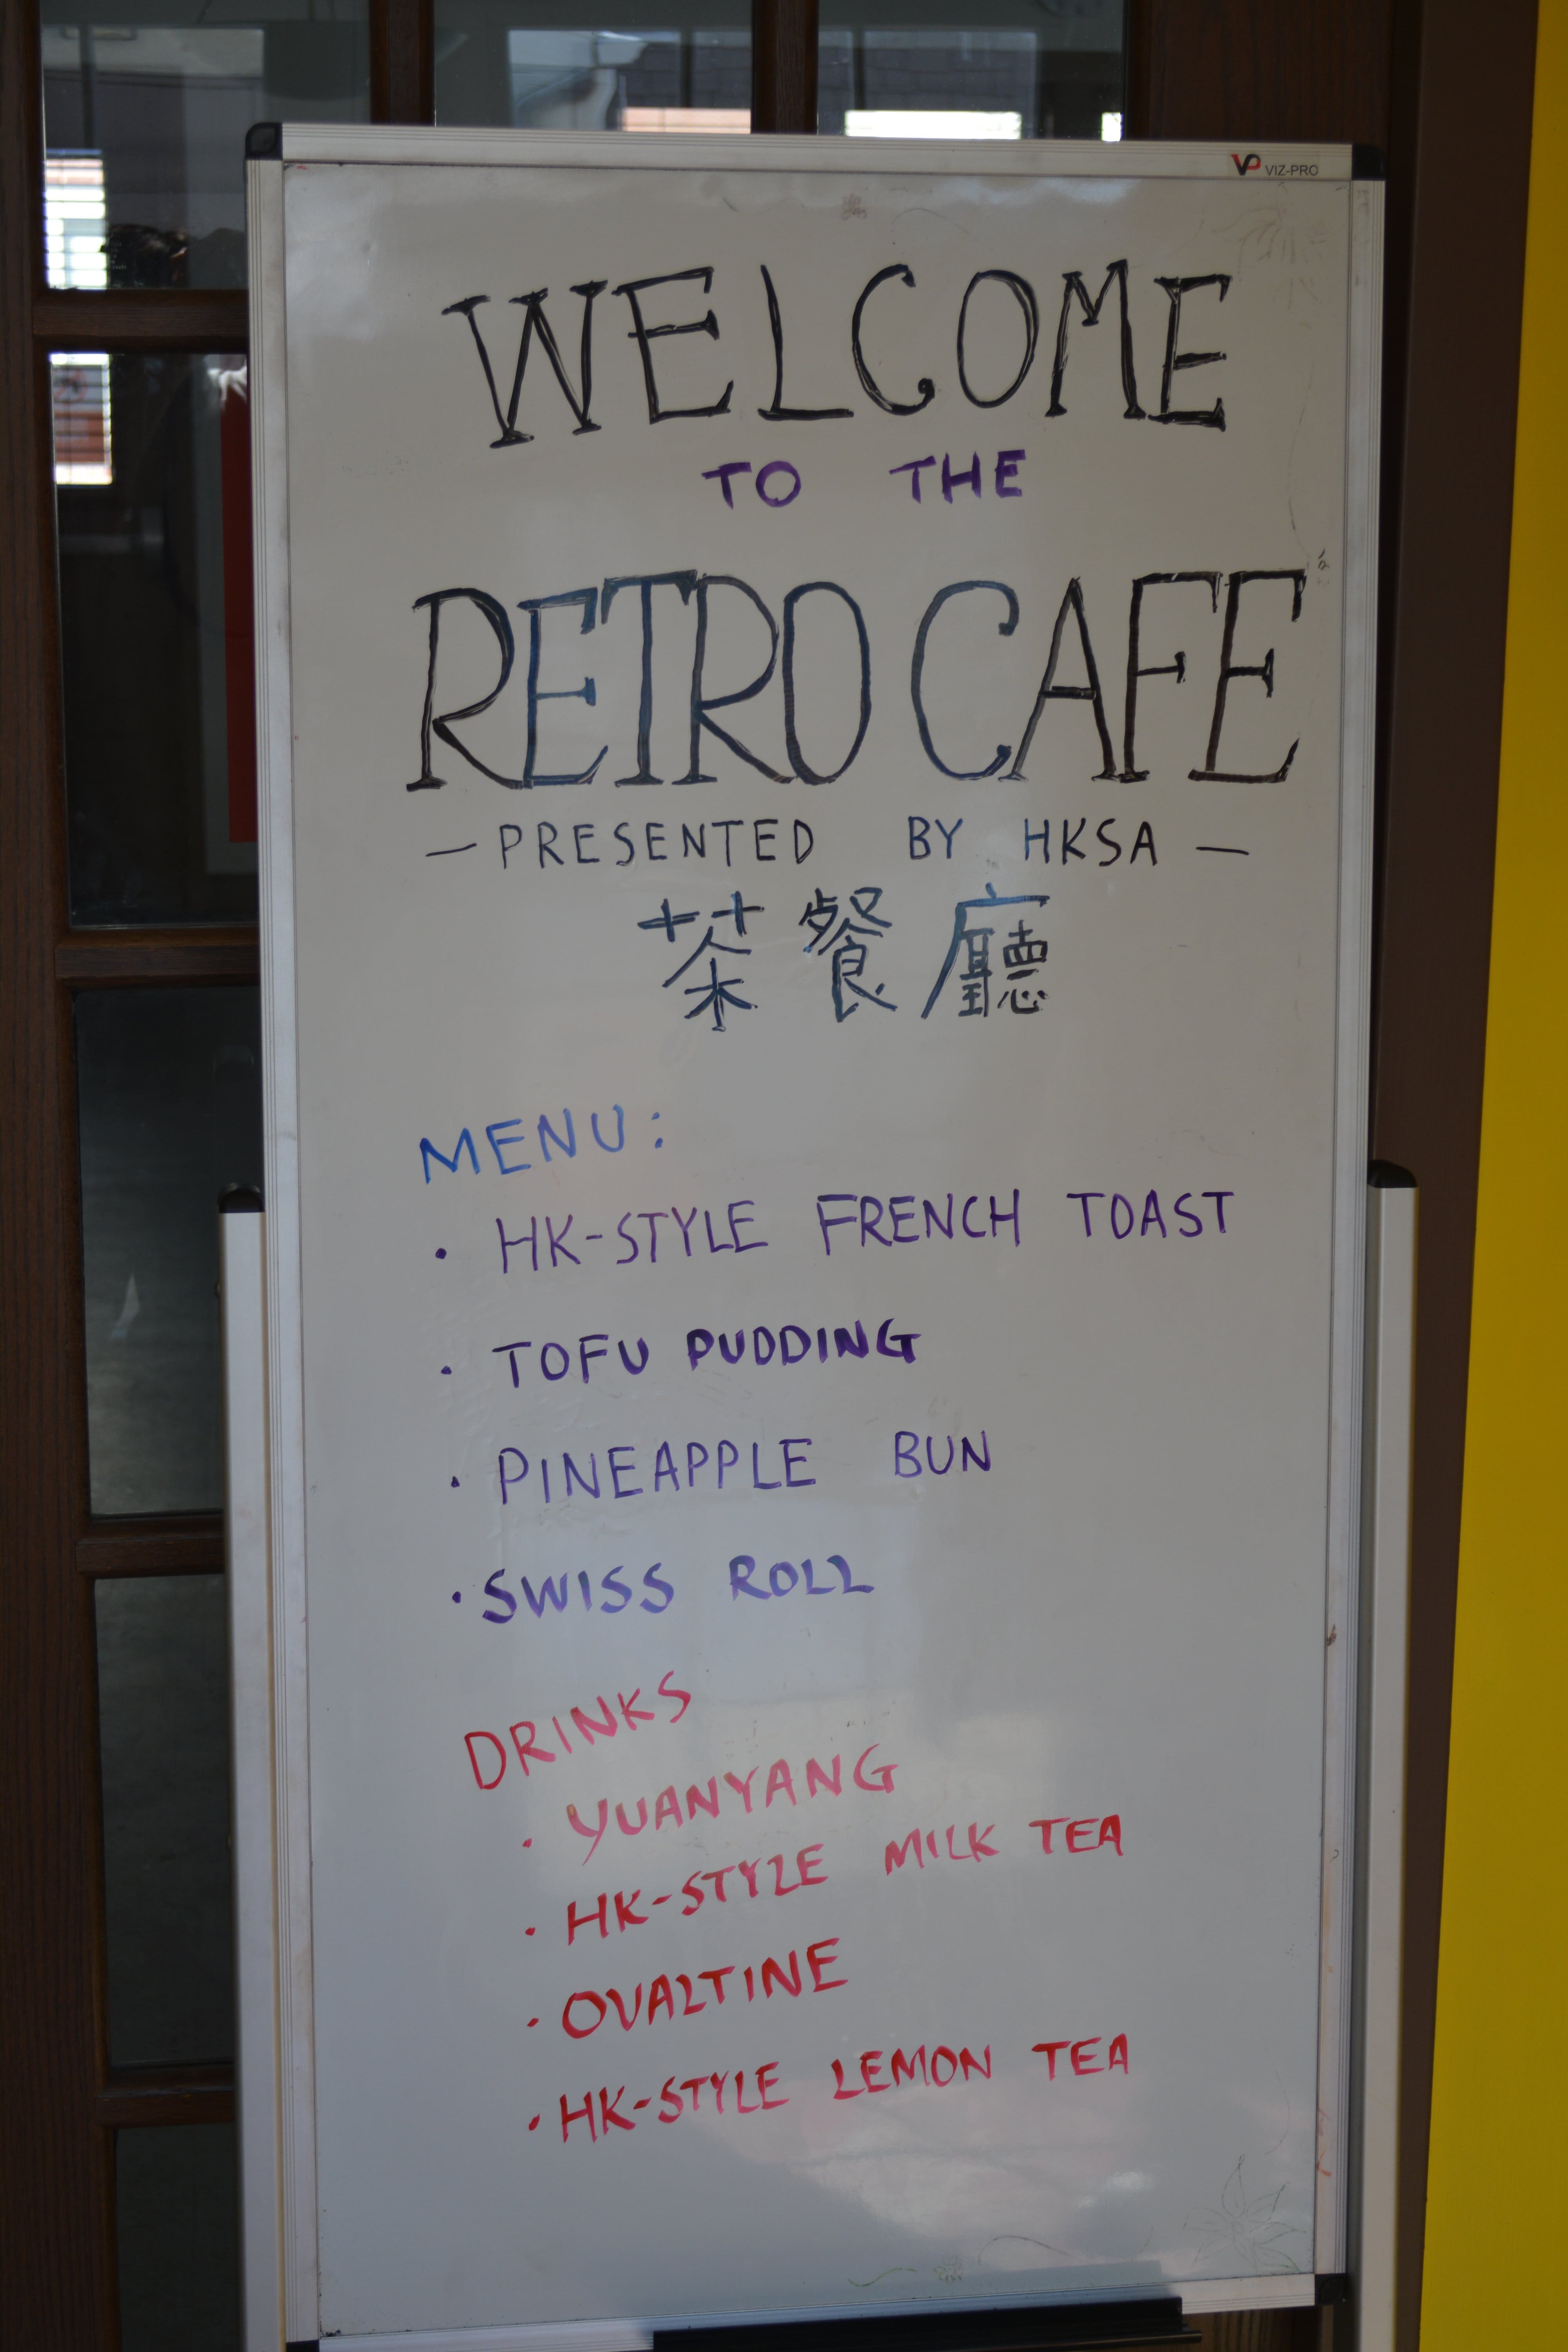 VP VIZ-PRO
WELCOME
TO THE
RETRO CAFE
— PRESENTED BY HKSA —
茶餐廳
MENU:
· HK-STYLE FRENCH TOAST
· TOFU PUDDING
· PINEAPPLE BUN
· SWISS ROLL
DRINKS
· YUANYANG
· HK-STYLE MILK TEA
· OVALTINE
· HK-STYLE LEMON TEA